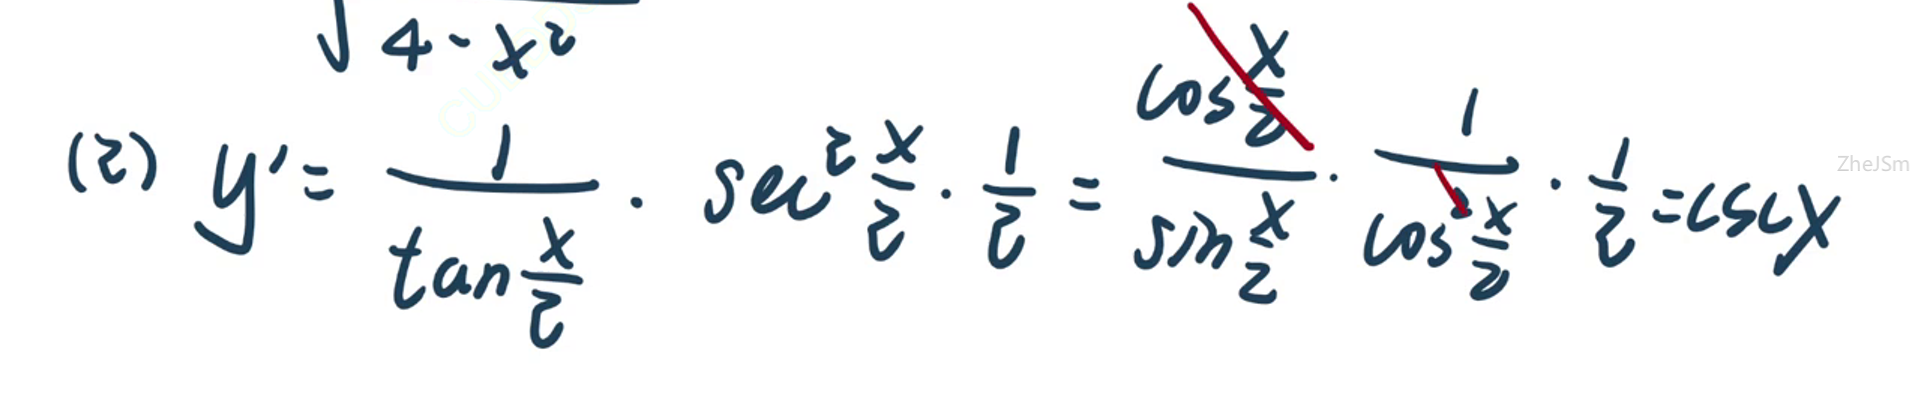 √(4-x²)
(2) y' = 1/(tan x/2) · sec² x/2 · 1/2 = (cos x/2)/(sin x/2) · 1/(cos² x/2) · 1/2 = csc x
ZheJSm